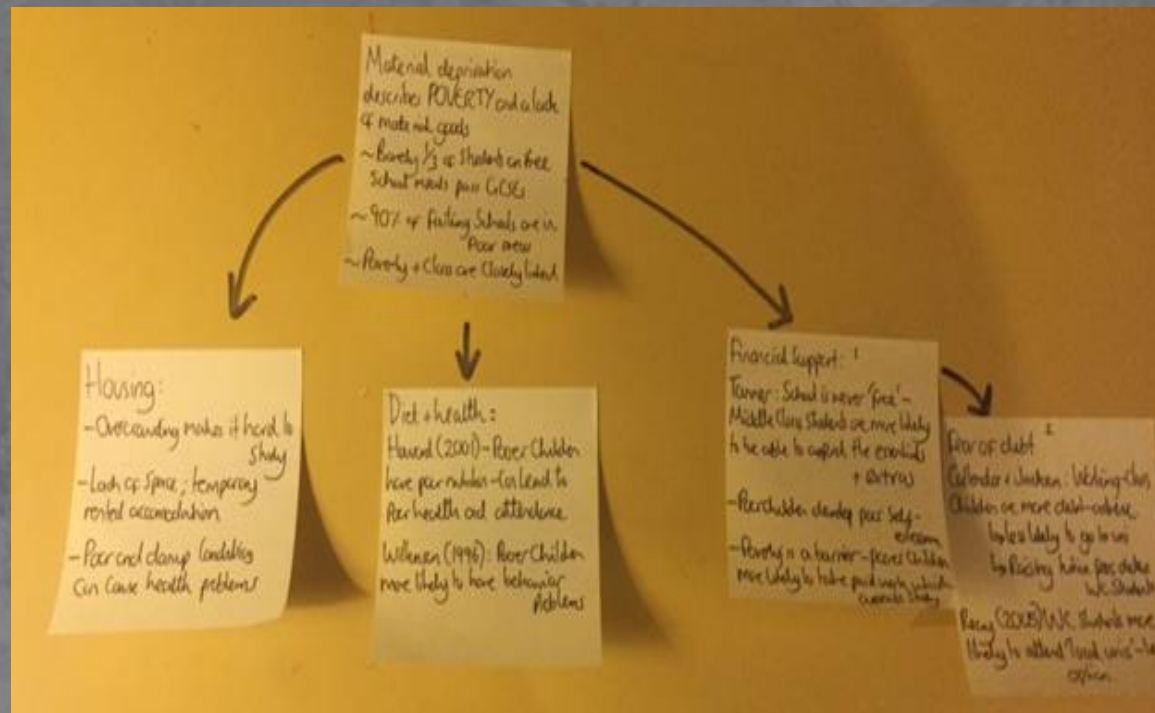 Material deprivation
describes POVERTY and a lack
of material goods
~ Barely 1/3 of students on free
School meals pass GCSEs
~ 90% of failing Schools are in
Poor areas
~ Poverty + Class are Closely linked
Housing:
- Overcrowding makes it hard to
study
- Lack of Space, temporary
rented accomodation
- Poor and damp conditions
can cause health problems
Diet + health:
Howard (2001) - Poorer Children
have poor nutrition - can lead to
Poor health and attendence
Wilkinson (1996): Poorer Children
more likely to have behavior
Problems
Financial Support:
Tanner: School is never 'free' -
Middle Class Students are more likely
to be able to afford the essentials
+ extras
- Poor children develop poor Self-
esteem
- Poverty is a barrier - poorer Children
more likely to take paid work which
Study
Fear of debt
Callender + Jackson: Working-Class
Children are more debt-adverse
↳ less likely to go to uni
↳ Raising tuition fees
WC Students
Reay (2005) WC Students more
likely to attend 'local unis' -